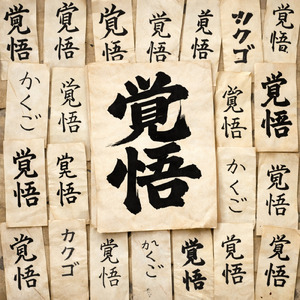 覚悟
覚悟
覚悟
覚悟
覚悟
ツクゴ
かくご
覚悟
覚悟
覚悟
覚悟
覚悟
覚悟
かくご
覚悟
カクゴ
覚悟
かくご
覚悟
覚悟
覚悟